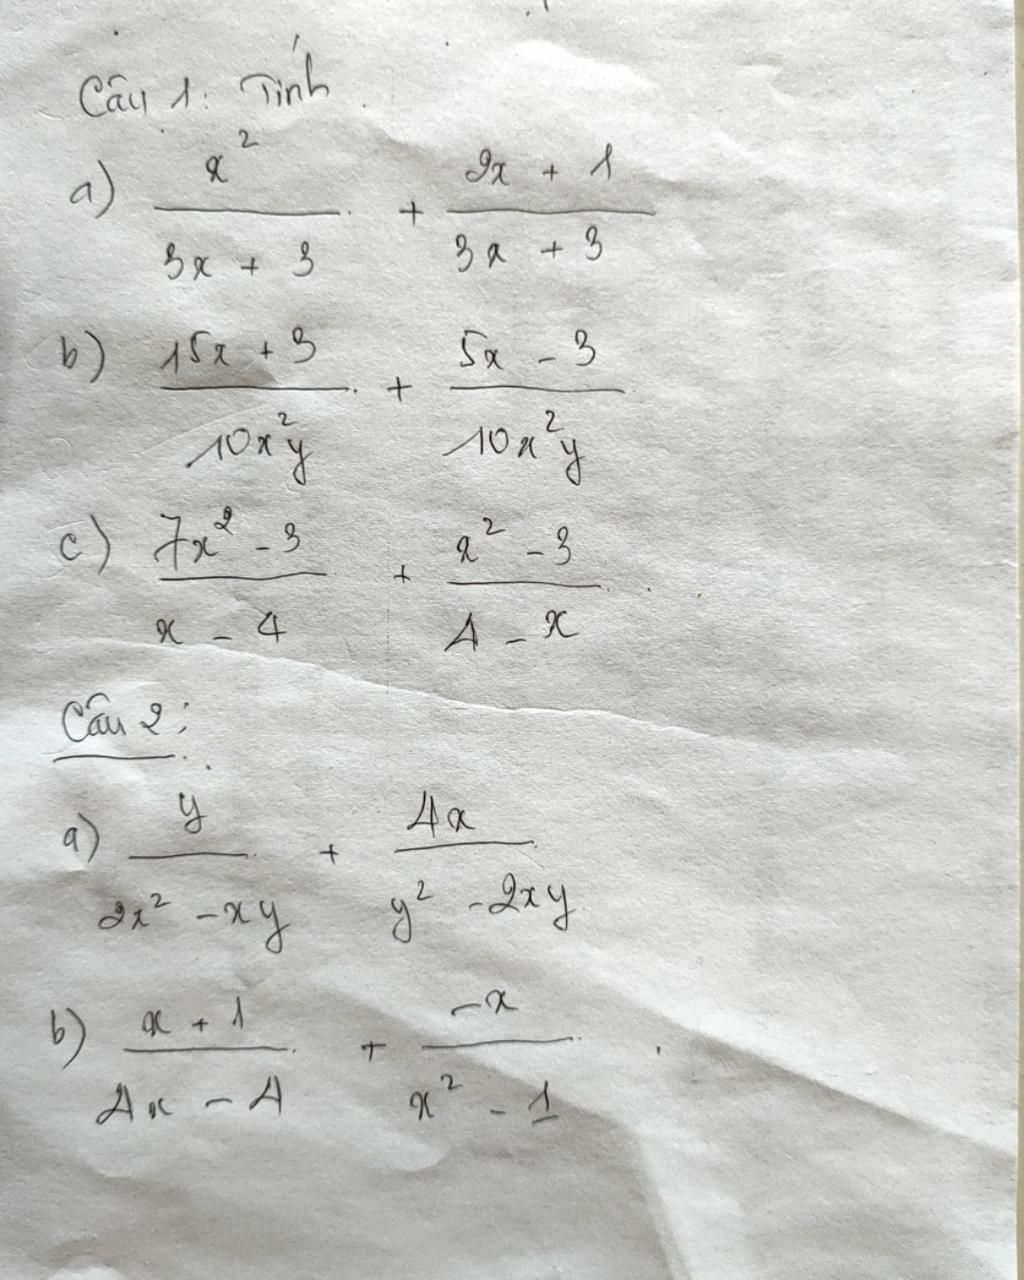 Câu 1: Tính
a) x² / (3x + 3) + (2x + 1) / (3x + 3)
b) (15x + 3) / (10x²y) + (5x - 3) / (10x²y)
c) (7x² - 3) / (x - 4) + (x² - 3) / (4 - x)
Câu 2:
a) y / (2x² - xy) + 4x / (y² - 2xy)
b) (x + 1) / (4x - 4) + (-x) / (x² - 1)